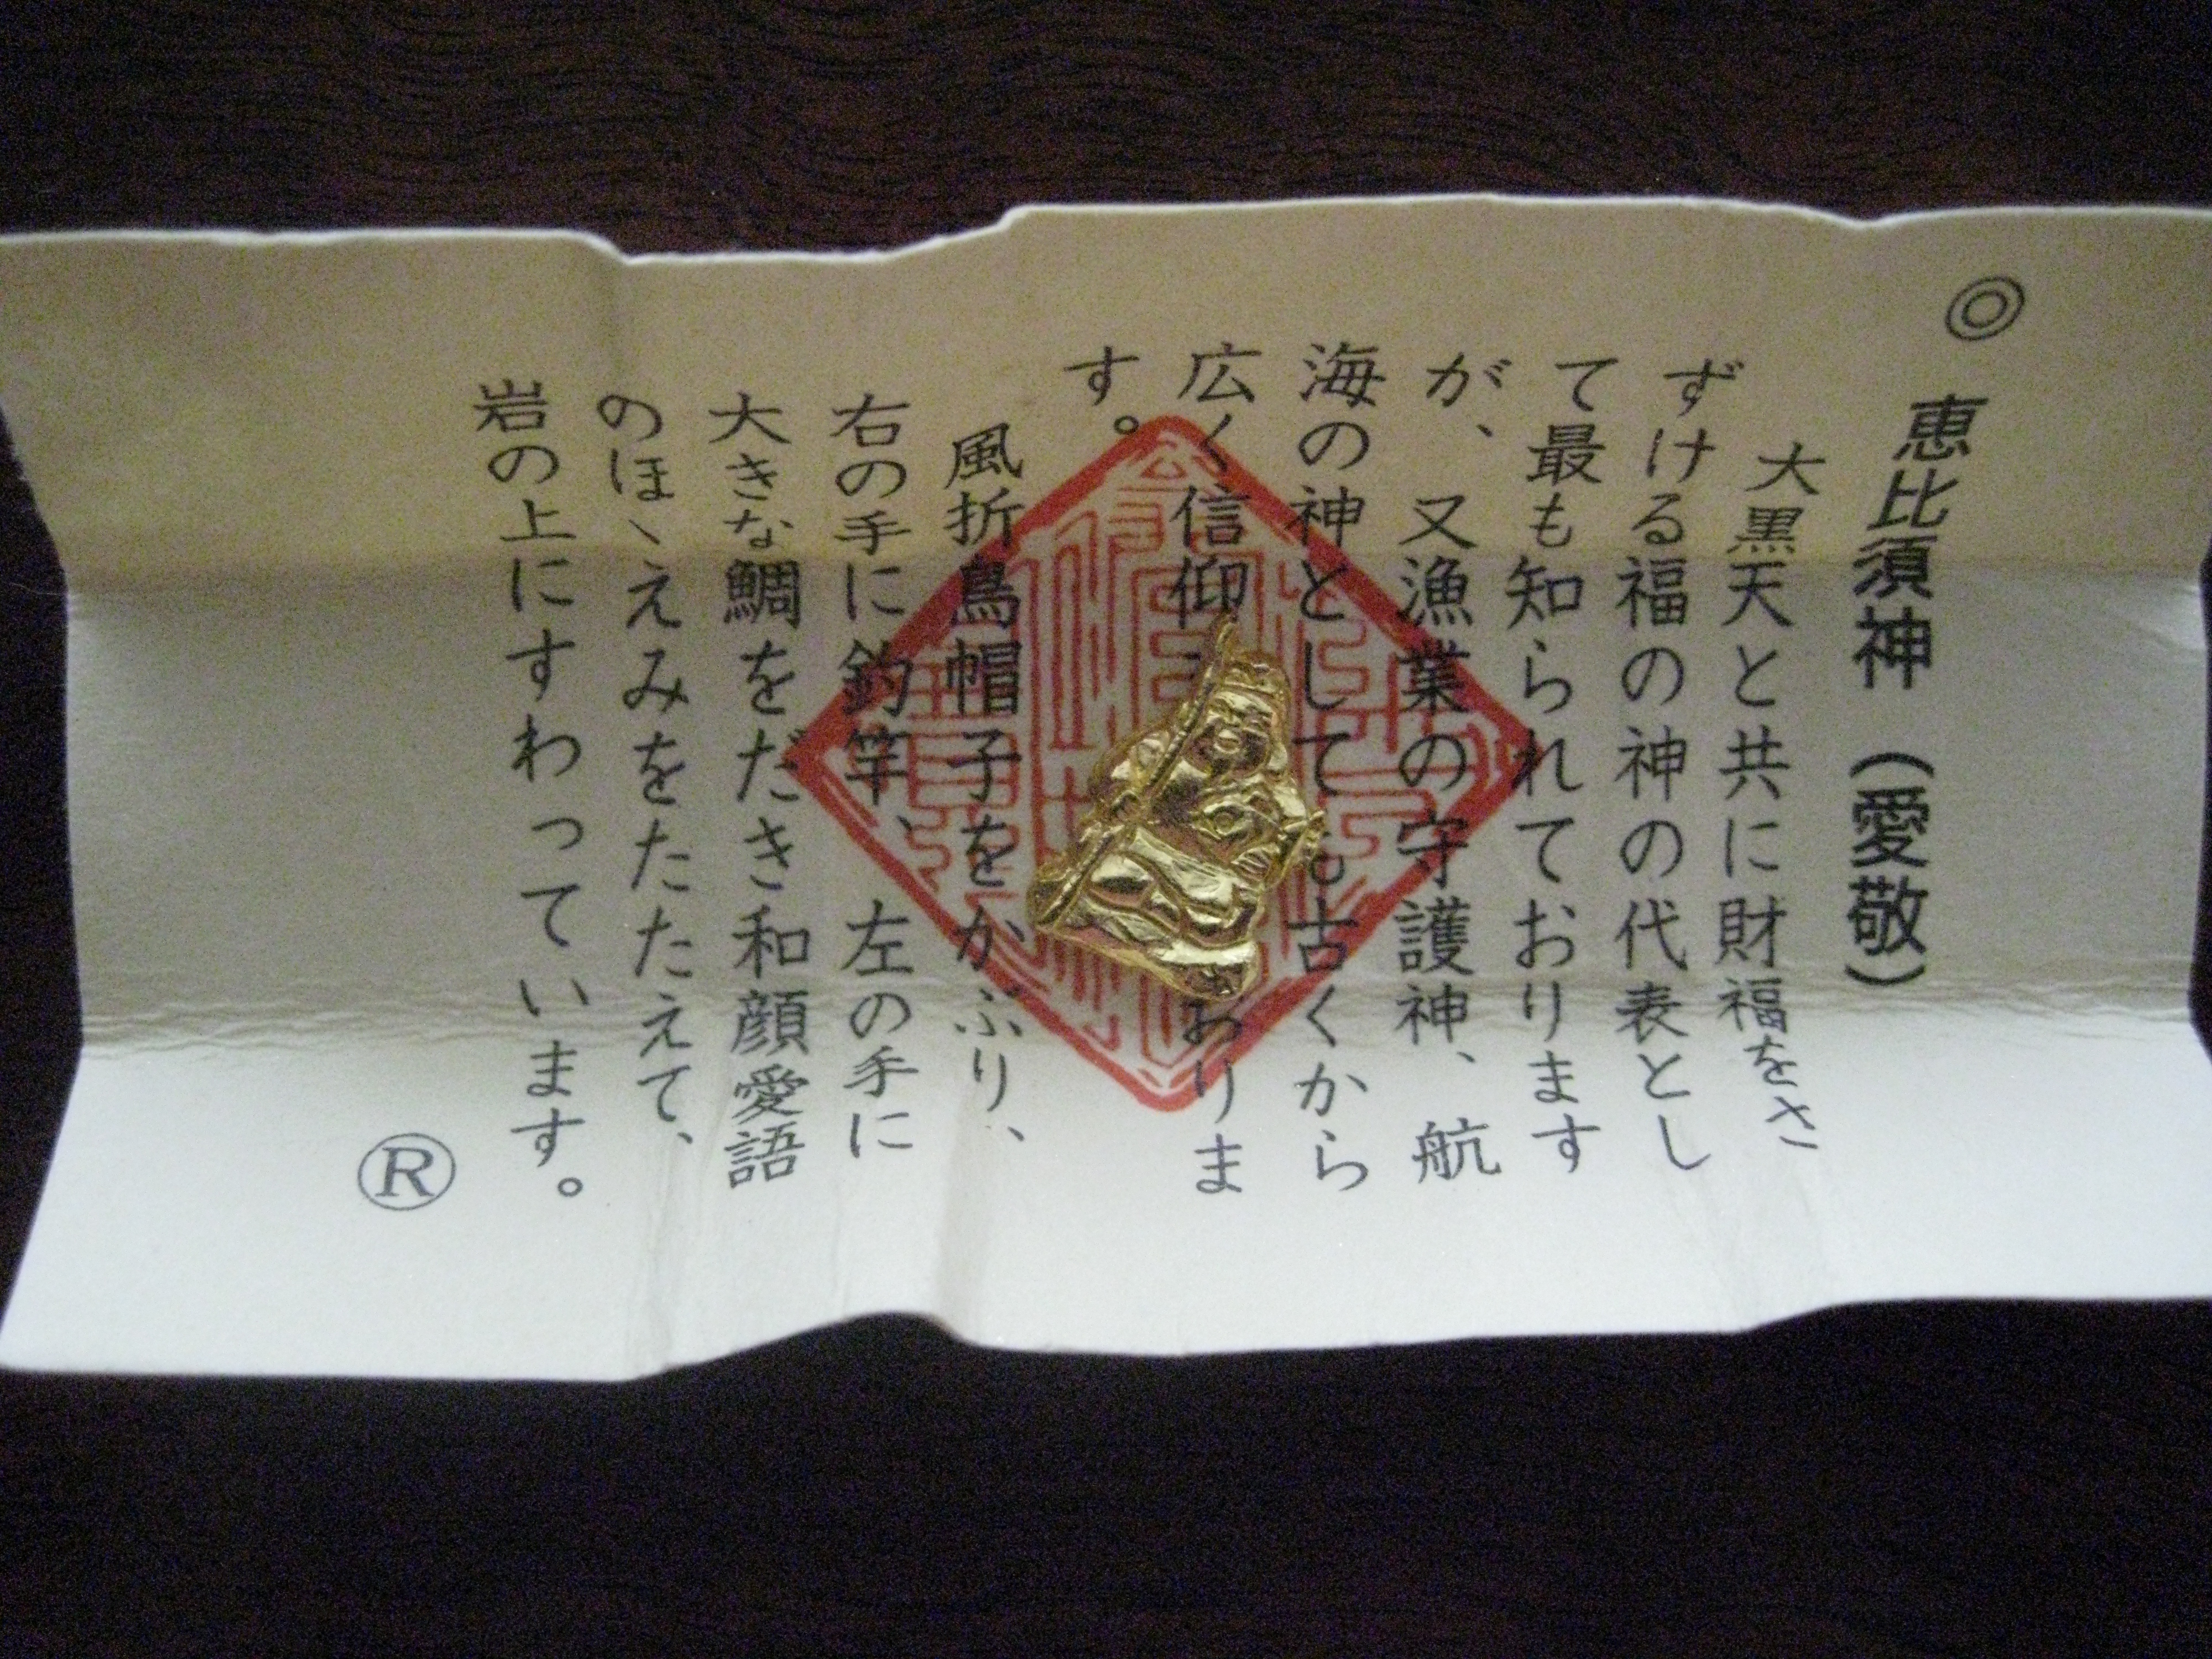 ◎ 恵比須神（愛敬）
大黒天と共に財福をさ
ずける福の神の代表とし
て最も知られております
が、又漁業の守護神、航
海の神としても古くから
広く信仰 おりま
す。
風折烏帽子をかぶり、
右の手に釣竿、左の手に
大きな鯛をだき和顔愛語
のほゝえみをたたえて、
岩の上にすわっています。
Ⓡ